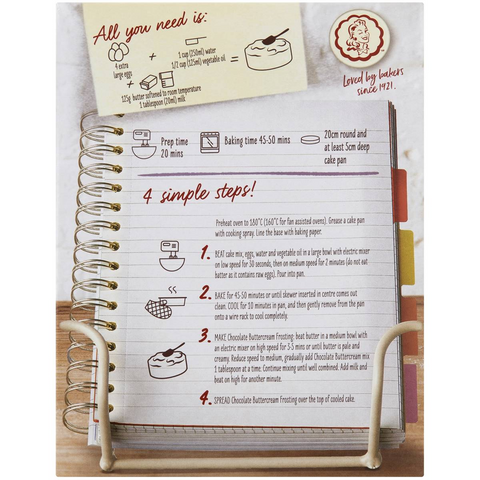 All you need is:
4 extra
large eggs
+
1 cup (250ml) water
1/2 cup (125ml) vegetable oil
=
+
125g butter softened to room temperature
1 tablespoon (20ml) milk
Loved by bakers
since 1921.
Prep time
20 mins
Baking time 45-50 mins
20cm round and
at least 5cm deep
cake pan
4 simple steps!
Preheat oven to 180°C (160°C for fan assisted ovens). Grease a cake pan
with cooking spray. Line the base with baking paper.
1. BEAT cake mix, eggs, water and vegetable oil in a large bowl with electric mixer
on low speed for 30 seconds, then on medium speed for 2 minutes (do not eat
batter as it contains raw eggs). Pour into pan.
2. BAKE for 45-50 minutes or until skewer inserted in centre comes out
clean. COOL for 10 minutes in pan, and then gently remove from the pan
onto a wire rack to cool completely.
3. MAKE Chocolate Buttercream Frosting: beat butter in a medium bowl with
an electric mixer on high speed for 3-5 mins or until butter is pale and
creamy. Reduce speed to medium, gradually add Chocolate Buttercream mix
1 tablespoon at a time. Continue mixing until well combined. Add milk and
beat on high for another minute.
4. SPREAD Chocolate Buttercream Frosting over the top of cooled cake.